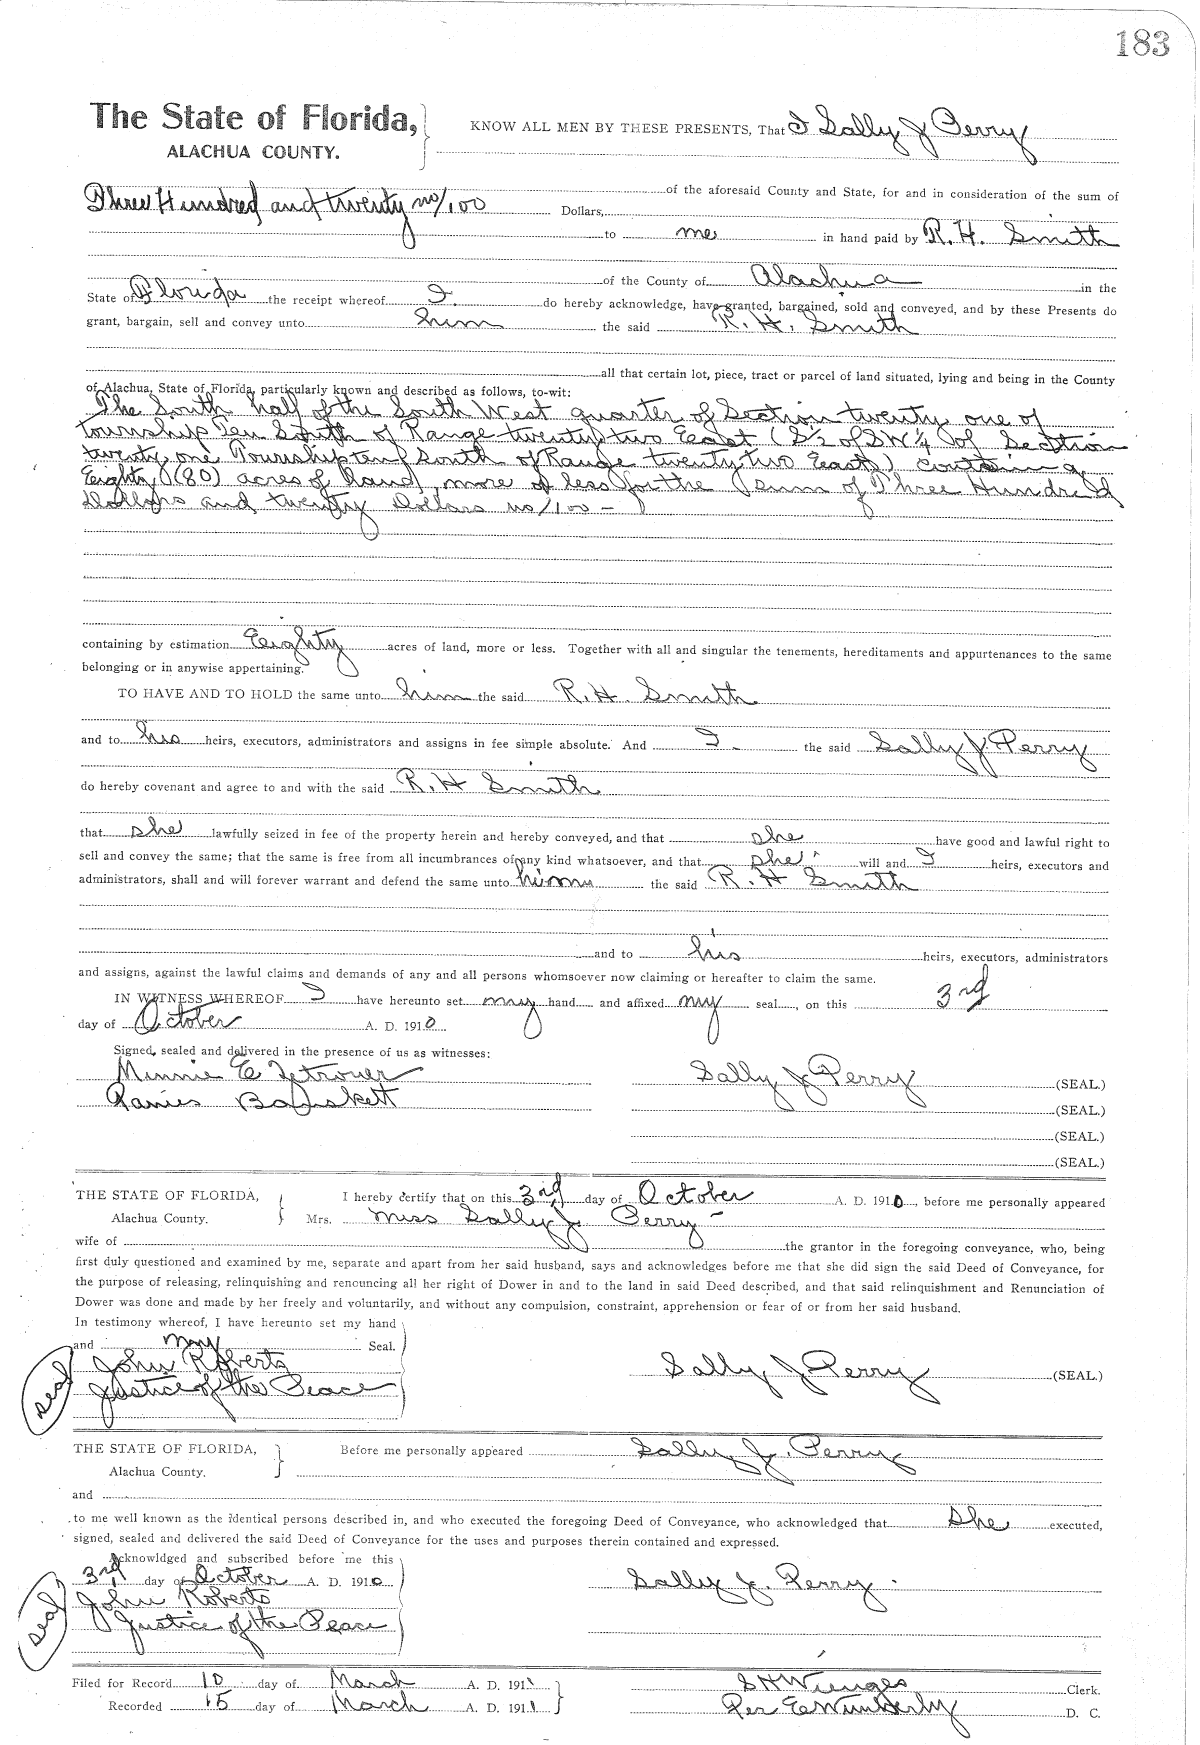 183
The State of Florida,
ALACHUA COUNTY.
KNOW ALL MEN BY THESE PRESENTS, That I Sally J Perry
of the aforesaid County and State, for and in consideration of the sum of
Three Hundred and twenty no/100 Dollars,
to me in hand paid by R. H. Smith
of the County of Alachua in the
State of Florida the receipt whereof I do hereby acknowledge, have granted, bargained, sold and conveyed, and by these Presents do
grant, bargain, sell and convey unto him the said R. H. Smith
all that certain lot, piece, tract or parcel of land situated, lying and being in the County
of Alachua, State of Florida, particularly known and described as follows, to-wit:
The South half of the South West quarter of Section twenty one of
township Ten South of Range twenty two East (S½ of SW¼ of Section
twenty one Township ten South of Range twenty two East) containing
Eighty (80) acres of land, more or less for the sum of Three Hundred
Dollars and twenty Dollars no/100 —
containing by estimation Eighty acres of land, more or less. Together with all and singular the tenements, hereditaments and appurtenances to the same
belonging or in anywise appertaining.
TO HAVE AND TO HOLD the same unto him the said R. H. Smith
and to his heirs, executors, administrators and assigns in fee simple absolute. And I the said Sally J. Perry
do hereby covenant and agree to and with the said R. H Smith
that she lawfully seized in fee of the property herein and hereby conveyed, and that she have good and lawful right to
sell and convey the same; that the same is free from all incumbrances of any kind whatsoever, and that she will and I heirs, executors and
administrators, shall and will forever warrant and defend the same unto him the said R. H Smith
and to his heirs, executors, administrators
and assigns, against the lawful claims and demands of any and all persons whomsoever now claiming or hereafter to claim the same.
IN WITNESS WHEREOF I have hereunto set my hand and affixed my seal, on this 3rd
day of October A. D. 1910
Signed, sealed and delivered in the presence of us as witnesses:
Minnie E Sally J Perry (SEAL.)
(SEAL.)
(SEAL.)
(SEAL.)
THE STATE OF FLORIDA,
Alachua County.
I hereby certify that on this 3rd day of October A. D. 1910, before me personally appeared
Mrs. Miss Sally J. Perry
wife of the grantor in the foregoing conveyance, who, being
first duly questioned and examined by me, separate and apart from her said husband, says and acknowledges before me that she did sign the said Deed of Conveyance, for
the purpose of releasing, relinquishing and renouncing all her right of Dower in and to the land in said Deed described, and that said relinquishment and Renunciation of
Dower was done and made by her freely and voluntarily, and without any compulsion, constraint, apprehension or fear of or from her said husband.
In testimony whereof, I have hereunto set my hand
and my Seal.
John Roberts
Justice of the Peace
seal
Sally J Perry (SEAL.)
THE STATE OF FLORIDA,
Alachua County.
Before me personally appeared Sally J. Perry
and
to me well known as the identical persons described in, and who executed the foregoing Deed of Conveyance, who acknowledged that she executed,
signed, sealed and delivered the said Deed of Conveyance for the uses and purposes therein contained and expressed.
Acknowldged and subscribed before me this
3rd day of October A. D. 1910
John Roberts
Justice of the Peace
seal
Sally J. Perry
Filed for Record 10 day of March A. D. 1911
Recorded 15 day of March A. D. 1911
S H Wienges Clerk.
Per E Wimberly D. C.